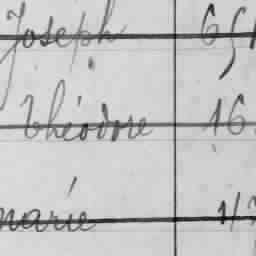 Joseph 65
Théodore 16
marie